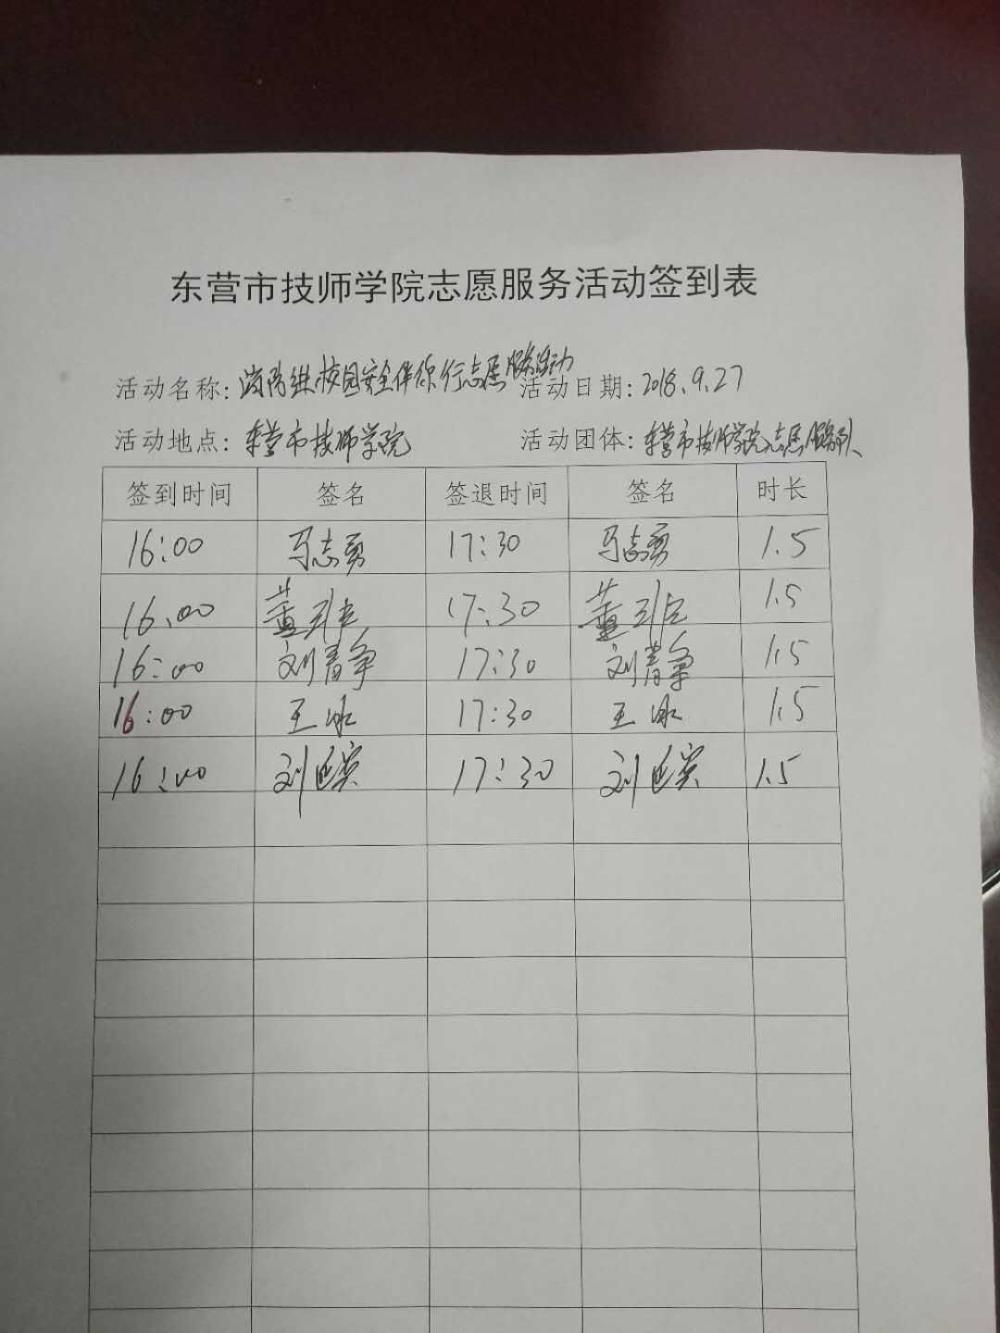 东营市技师学院志愿服务活动签到表
活动名称: 校园安全伴你行志愿服务活动 活动日期: 2018.9.27
活动地点: 东营市技师学院 活动团体: 东营市技师学院志愿服务队
签到时间 签名 签退时间 签名 时长
16:00 马志勇 17:30 马志勇 1.5
16:00 董 17:30 董 1.5
16:00 刘 17:30 刘 1.5
16:00 王冰 17:30 王冰 1.5
16:00 刘 17:30 刘 1.5